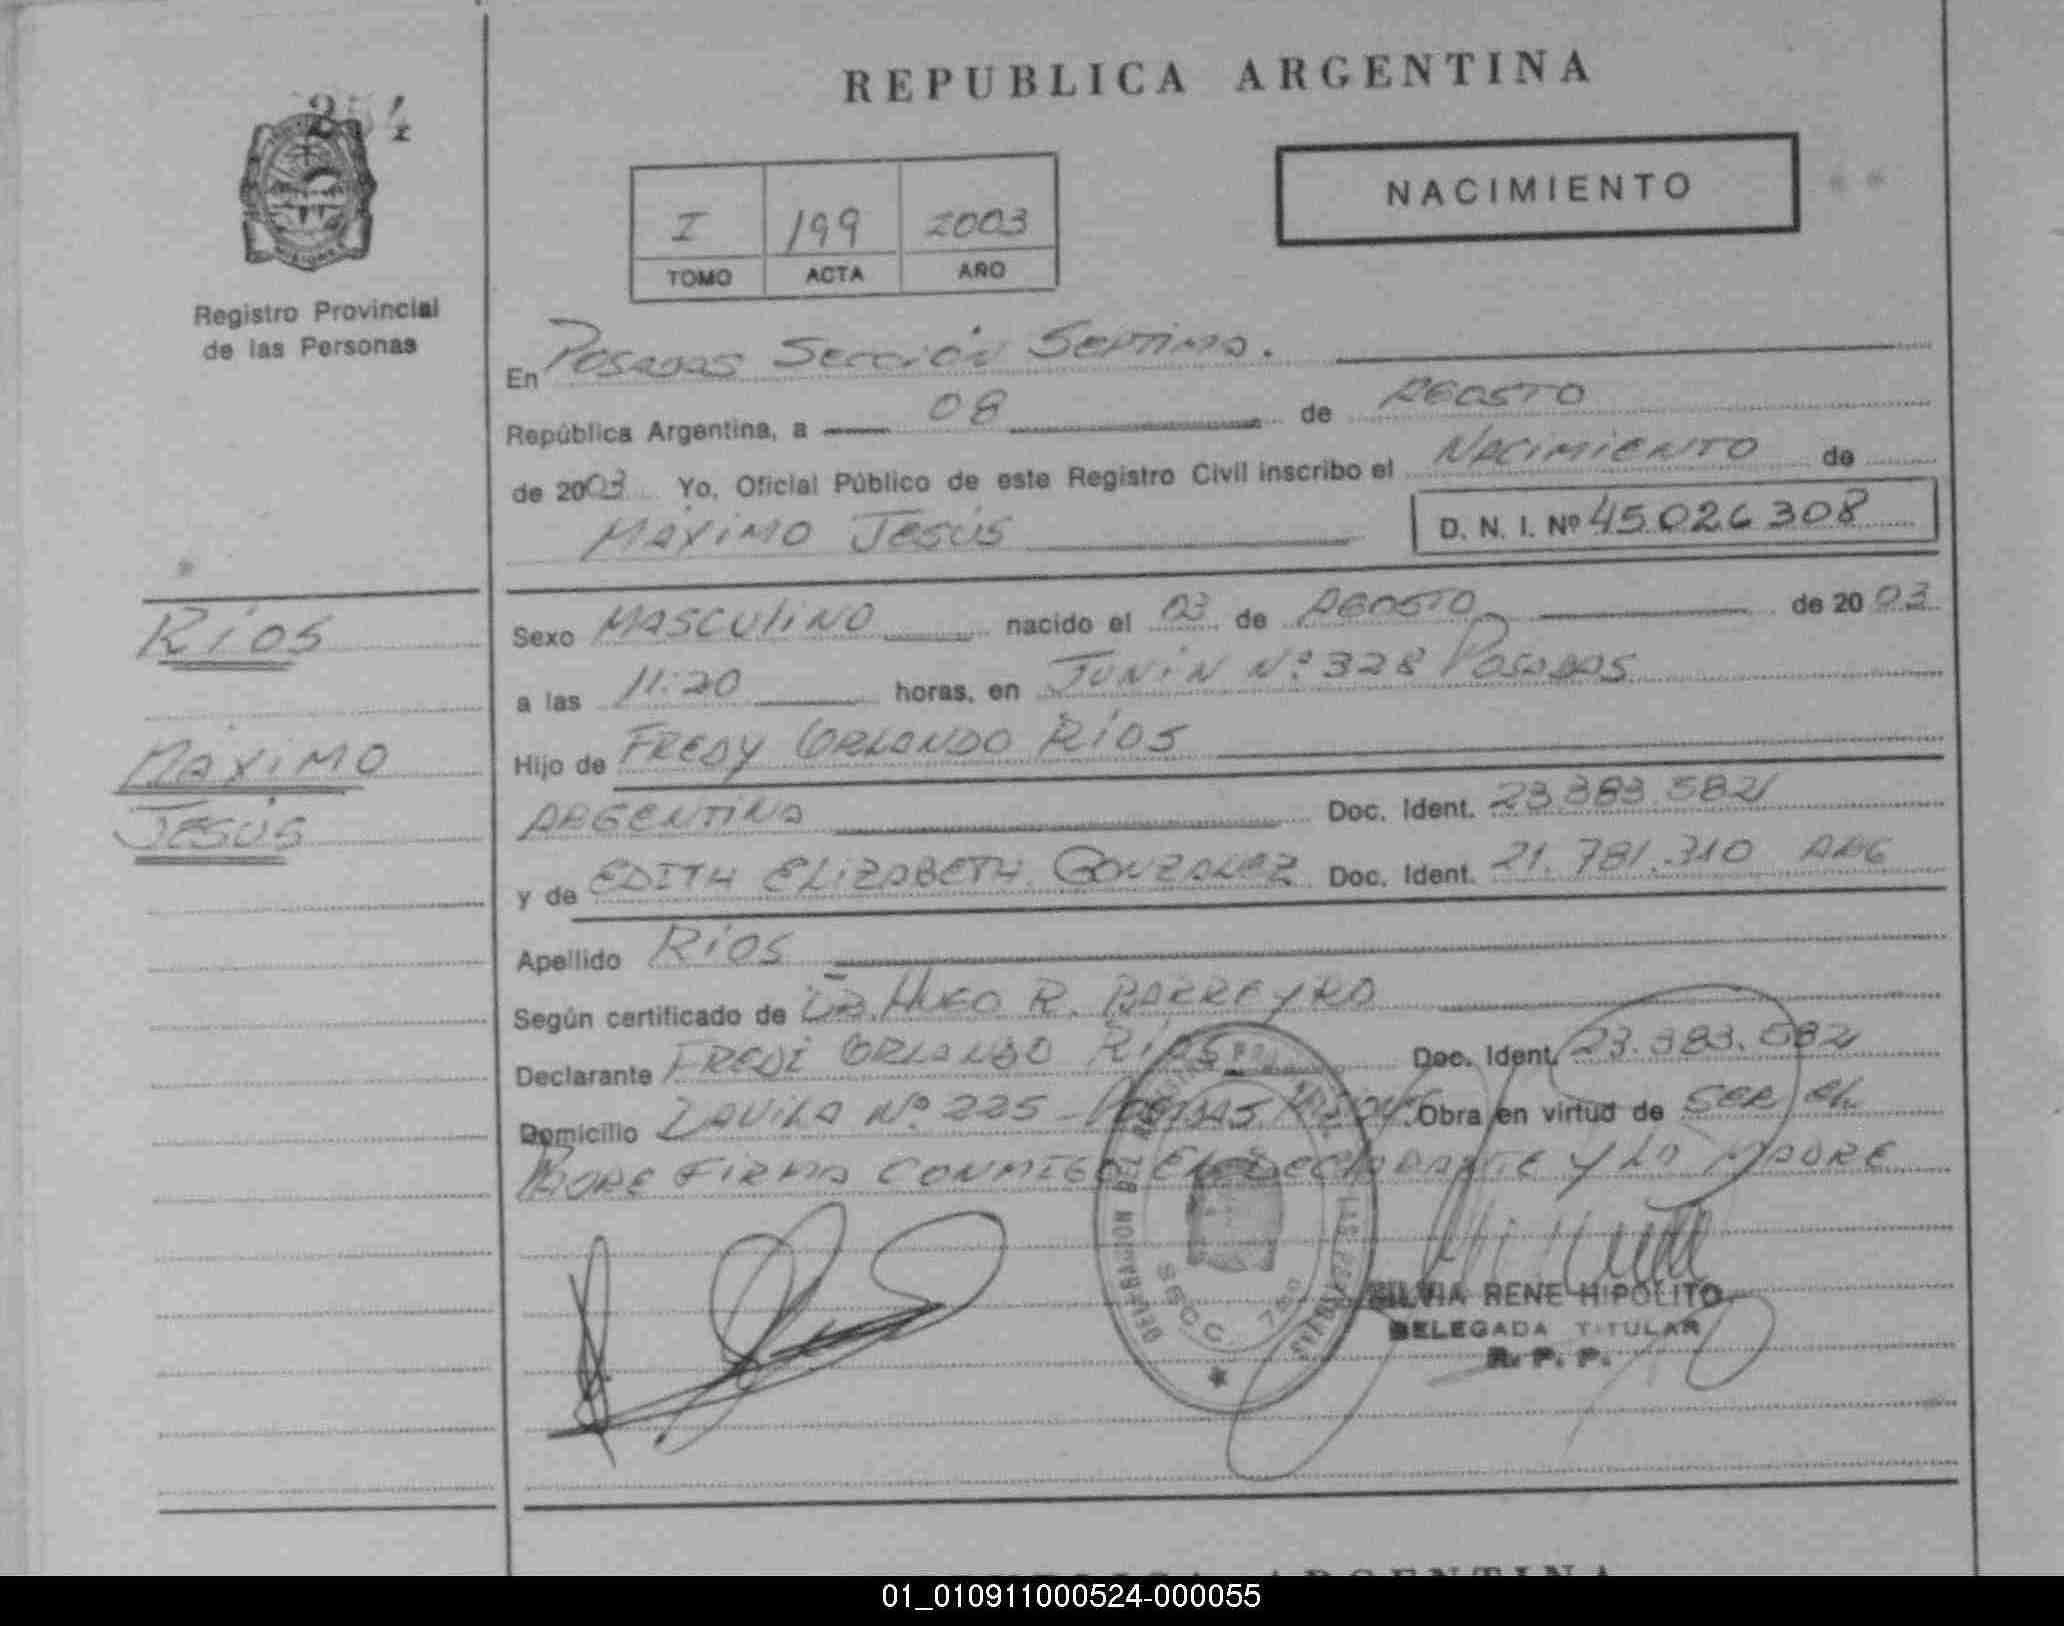 REPUBLICA ARGENTINA
NACIMIENTO
I 199 2003
TOMO ACTA AÑO
Registro Provincial
de las Personas
En Posadas Sección Septima.
República Argentina, a 08 de Agosto
de 2003 Yo, Oficial Público de este Registro Civil inscribo el Nacimiento de
Máximo Jesús D. N. I. Nº 45.026.308
Ríos
Máximo
Jesús
Sexo Masculino nacido el 03 de Agosto de 2003
a las 11:20 horas, en Junín Nº 328 Posadas
Hijo de Fredy Orlando Ríos
Argentina Doc. Ident. 23.383.582
y de Edith Elizabeth Gonzalez Doc. Ident. 21.781.310 Arg
Apellido Ríos
Según certificado de Dr. Hugo R. Barreyro
Declarante Fredi Orlando Ríos Doc. Ident. 23.383.582
Domicilio Nº 225 - Posadas Obra en virtud de ser el
Padre firma conmigo el declarante y la madre
SECC. 7
SILVIA RENE HIPOLITO
DELEGADA TITULAR
R. P. P.
01_010911000524-000055